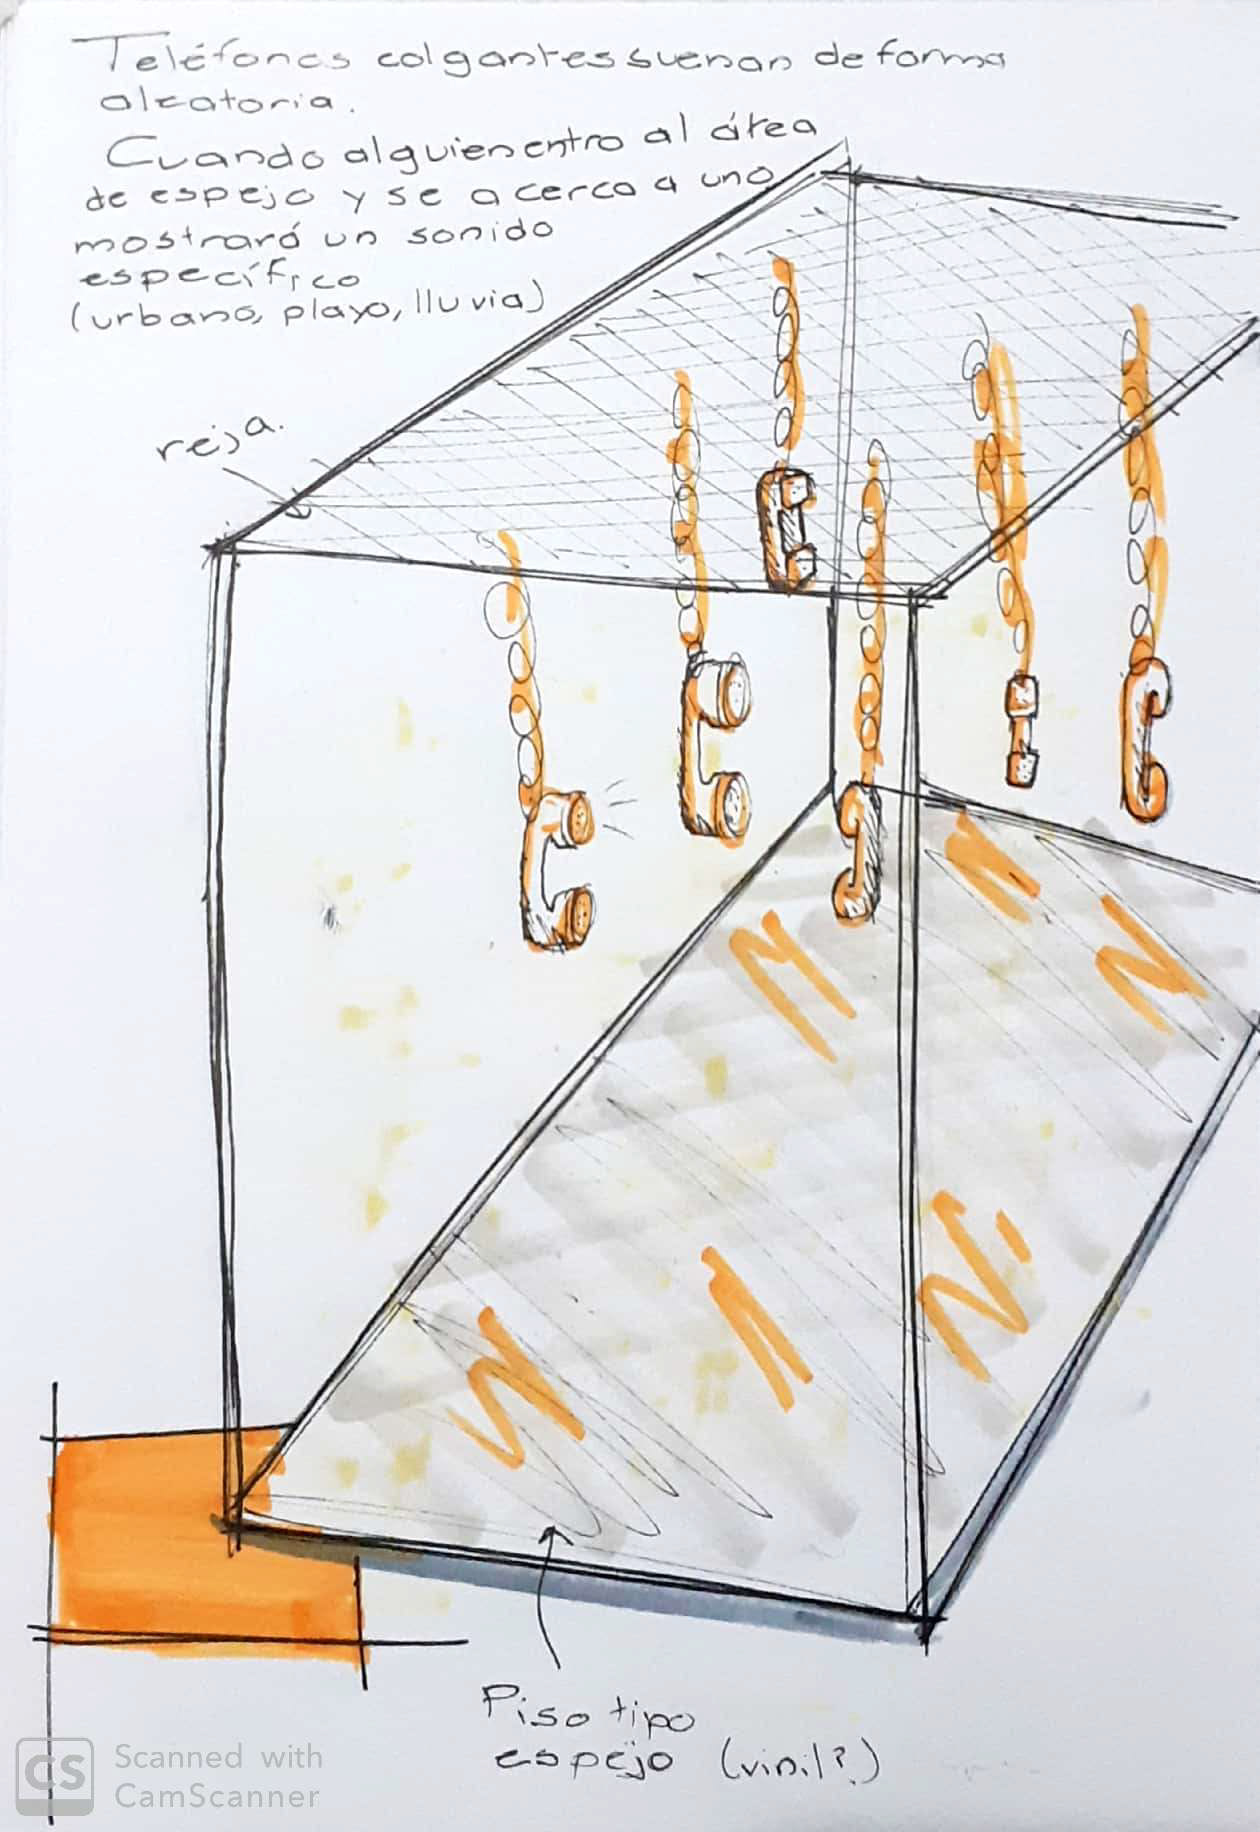 Teléfonos colgantes suenan de forma
aleatoria.
Cuando alguien entra al área
de espejo y se acerca a uno
mostrará un sonido
específico
(urbano, playa, lluvia)
reja.
Piso tipo
espejo (vinil?)
CS Scanned with
CamScanner